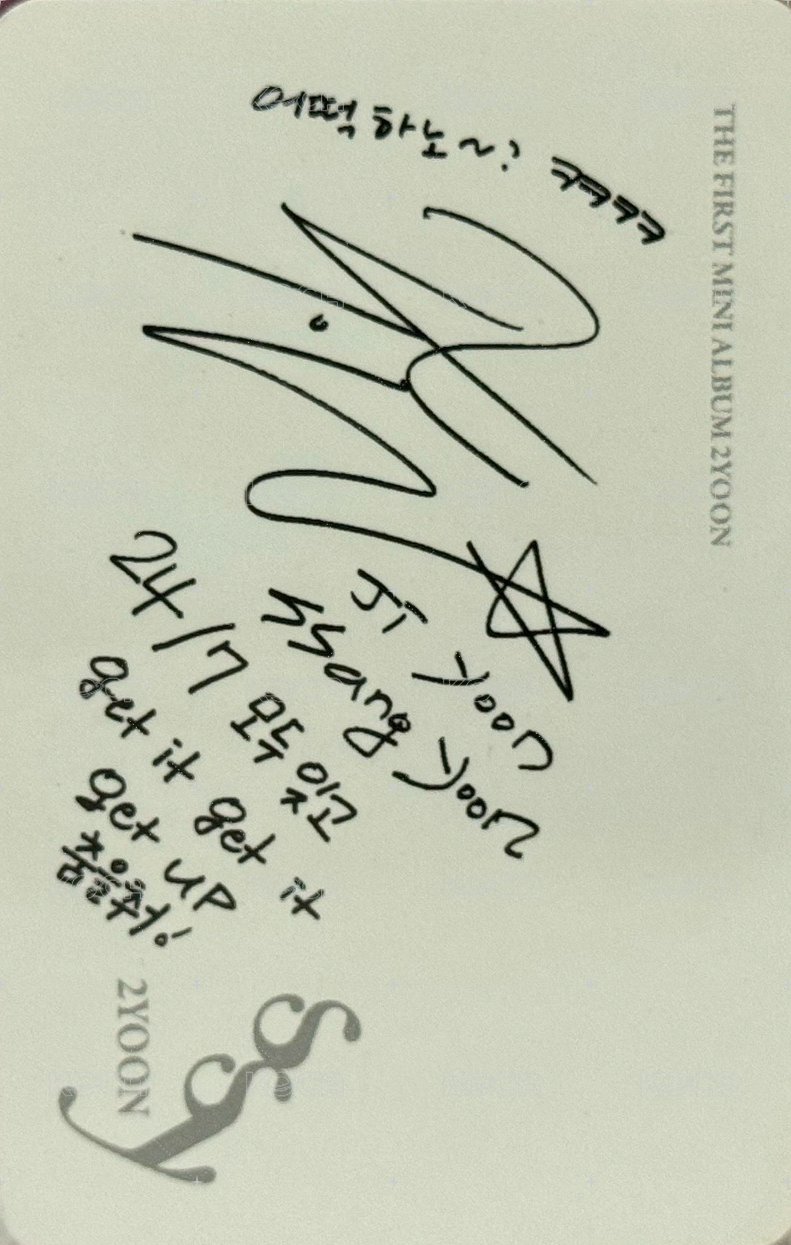 THE FIRST MINI ALBUM 2YOON
어떡하노~? ㅋㅋㅋㅋ
Ji Yoon
SSang Yoon
24/7 모두 잊고
get it get it
get up
춤을 춰!
2YOON